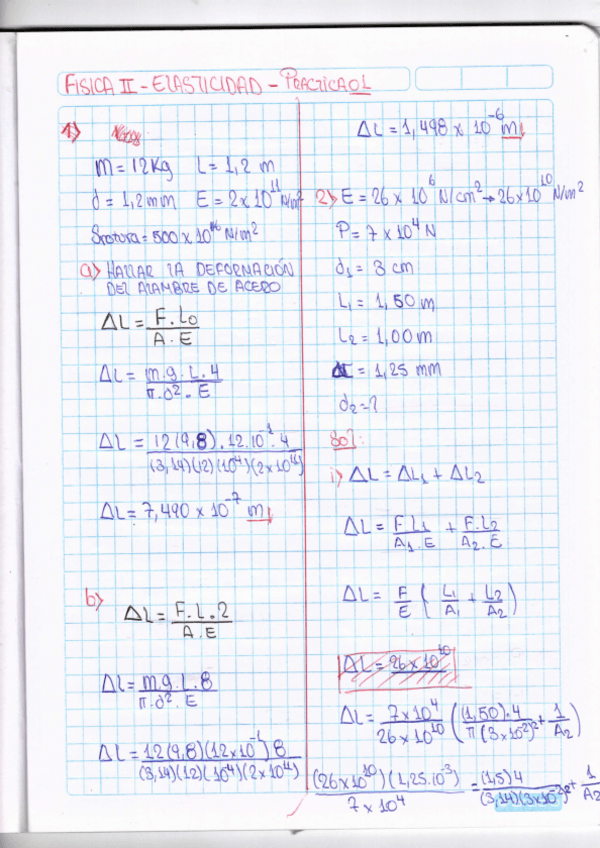 FISICA II - ELASTICIDAD - PRACTICA 01
1)
m = 12 Kg L = 1,2 m
d = 1,2 mm E = 2 x 10¹¹ N/m²
a) HALLAR LA DEFORMACIÓN
DEL ALAMBRE DE ACERO
ΔL = F.L₀ / A.E
ΔL = m.g.L.4 / π.d².E
ΔL = 12(9,8).12.10⁻¹.4 / (3,14)(12)(10⁻⁴)(2x10¹¹)
ΔL = 7,490 x 10⁻⁷ m
b)
ΔL = F.L.2 / A.E
ΔL = m.g.L.8 / π.d².E
ΔL = 12(9,8)(12x10⁻¹)8 / (3,14)(12)(10⁻⁴)(2x10¹¹)
ΔL = 1,498 x 10⁻⁶ m
2) E = 26 x 10⁶ N/cm² → 26x10¹⁰ N/m²
P = 7 x 10⁴ N
d₁ = 3 cm
L₁ = 1,50 m
L₂ = 1,00 m
= 1,25 mm
d₂ = ?
Sol:
i) ΔL = ΔL₁ + ΔL₂
ΔL = F.L₁ / A₁.E + F.L₂ / A₂.E
ΔL = F/E ( L₁/A₁ + L₂/A₂ )
ΔL = 26x10¹⁰
ΔL = 7x10⁴ / 26x10¹⁰ ( (1,50).4 / π(3x10⁻²)² + 1/A₂ )
(26x10¹⁰)(1,25.10⁻³) / 7x10⁴ = (1,5)4 / (3,14)(3x10⁻²)² + 1/A₂